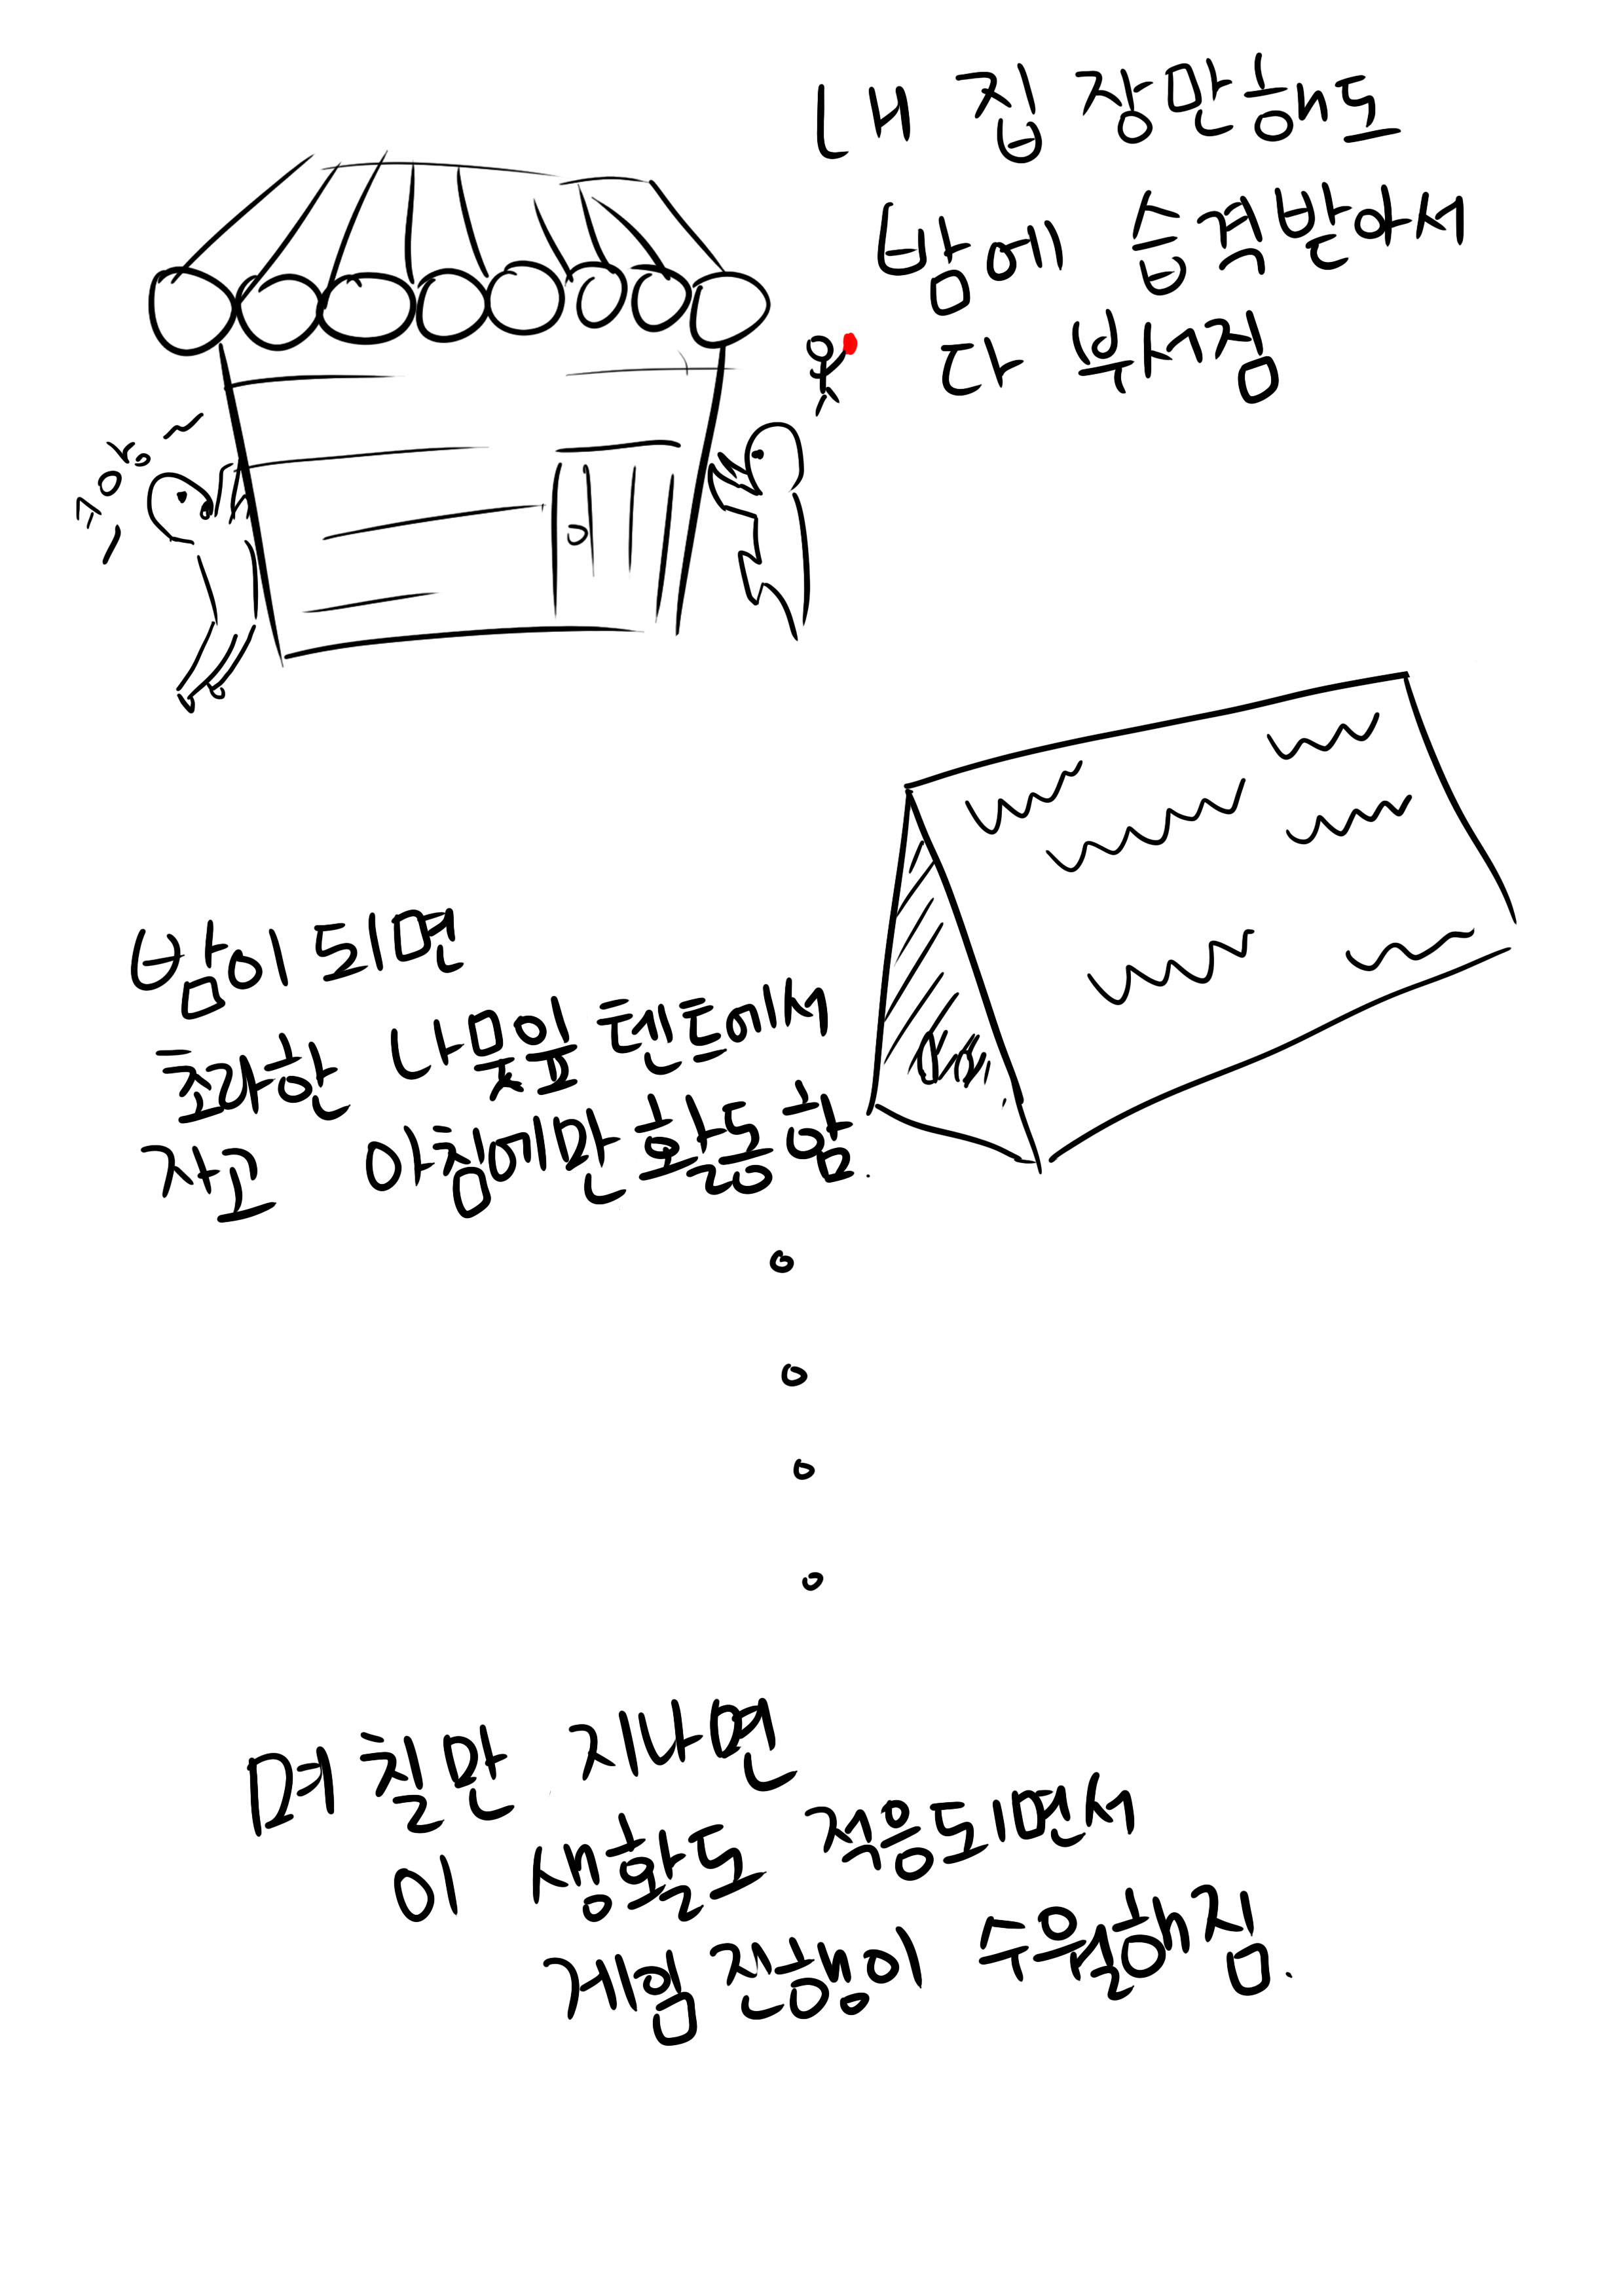 내 집 장만해도
밤에 습격받아서
다 부서짐
크아앙~
밤이 되면
초라한 나뭇잎 텐트에서
자고 아침에만 활동함.
며칠만 지나면
이 생활도 적응되면서
게임 진행이 수월해짐.